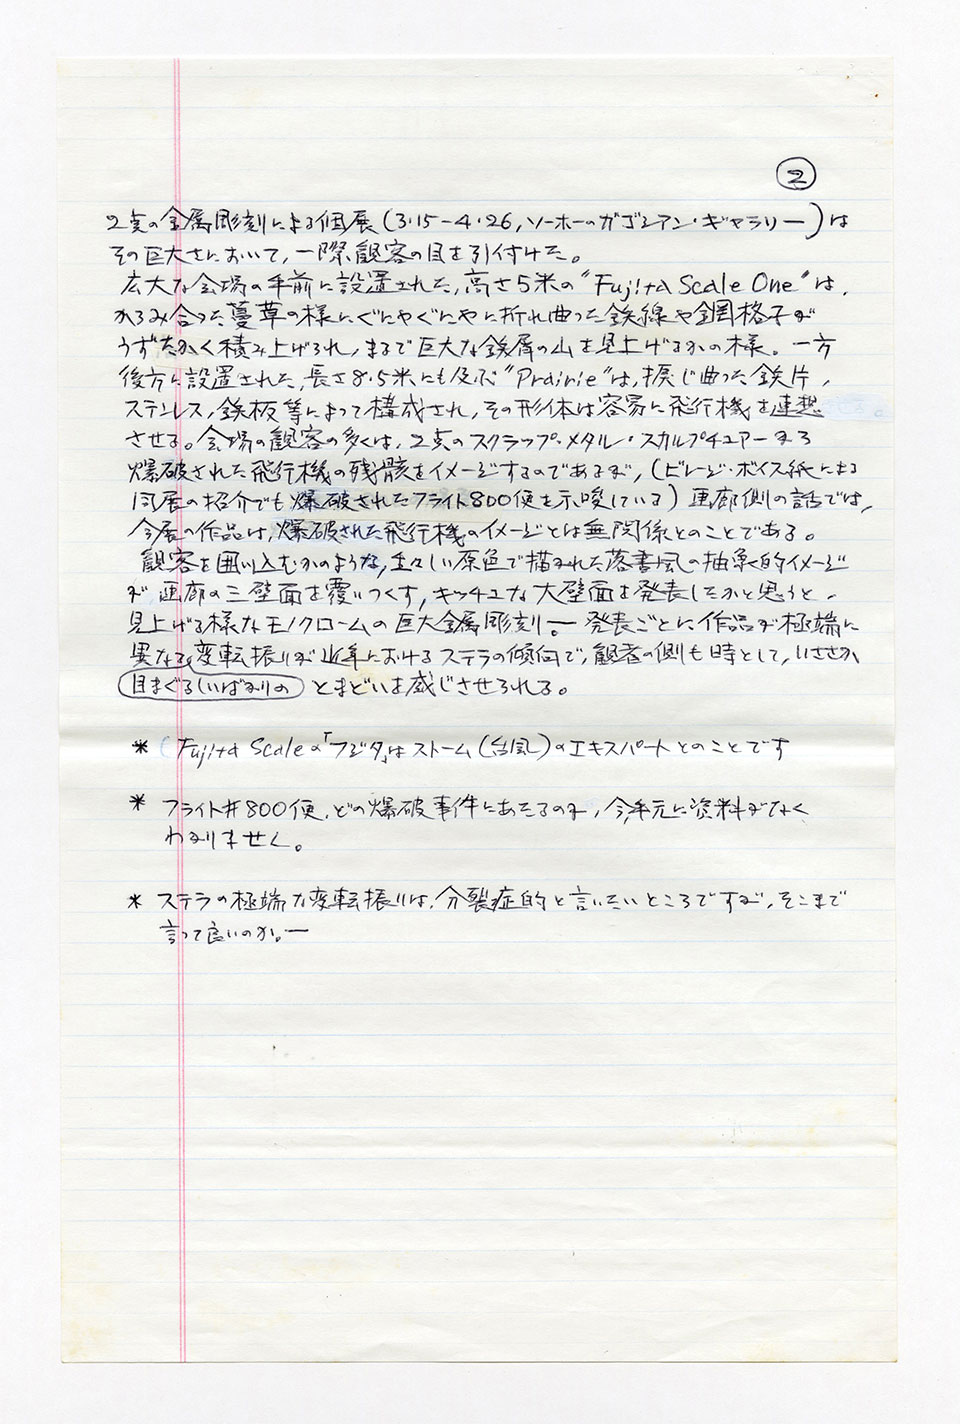 ②
2点の金属彫刻による個展(3·15－4·26, ソーホーのガゴシアン・ギャラリー)は
その巨大さにおいて, 一際観客の目を引付けた。
広大な会場の手前に設置された, 高さ5米の“Fujita Scale One”は,
からみ合った蔓草の様にぐにゃぐにゃに折れ曲った鉄線や鋼格子が
うずたかく積み上げられ, まるで巨大な鉄屑の山を見上げるかの様。一方
後方に設置された, 長さ8·5米にも及ぶ“Prairie”は, 捩じ曲った鉄片,
ステンレス, 鉄板等によって構成され, その形体は容易に飛行機を連想
させる。会場の観客の多くは, 2点のスクラップ・メタル・スカルプチュアーから
爆破された飛行機の残骸をイメージするのであるが, (ビレージ・ボイス紙による
同展の紹介でも爆破されたフライト800便を示唆している) 画廊側の話では,
今展の作品は, 爆破された飛行機のイメージとは無関係とのことである。
観客を囲い込むかのような, 生々しい原色で描かれた落書風の抽象的イメージ
が画廊の三壁面を覆いつくす, キッチュな大壁面を発表したかと思うと,
見上げる様なモノクロームの巨大金属彫刻。― 発表ごとに作品が極端に
異なる変転振りが近年におけるステラの傾向で, 観客の側も時として, いささか
目まぐるしいばかりの とまどいを感じさせられる。
* ( Fujita Scaleの「フジタ」はストーム(台風)のエキスパートとのことです
* フライト#800便, どの爆破事件にあたるのか, 今手元に資料がなく
わかりません。
* ステラの極端な変転振りは, 分裂症的と言いたいところですが, そこまで
言って良いのか。―